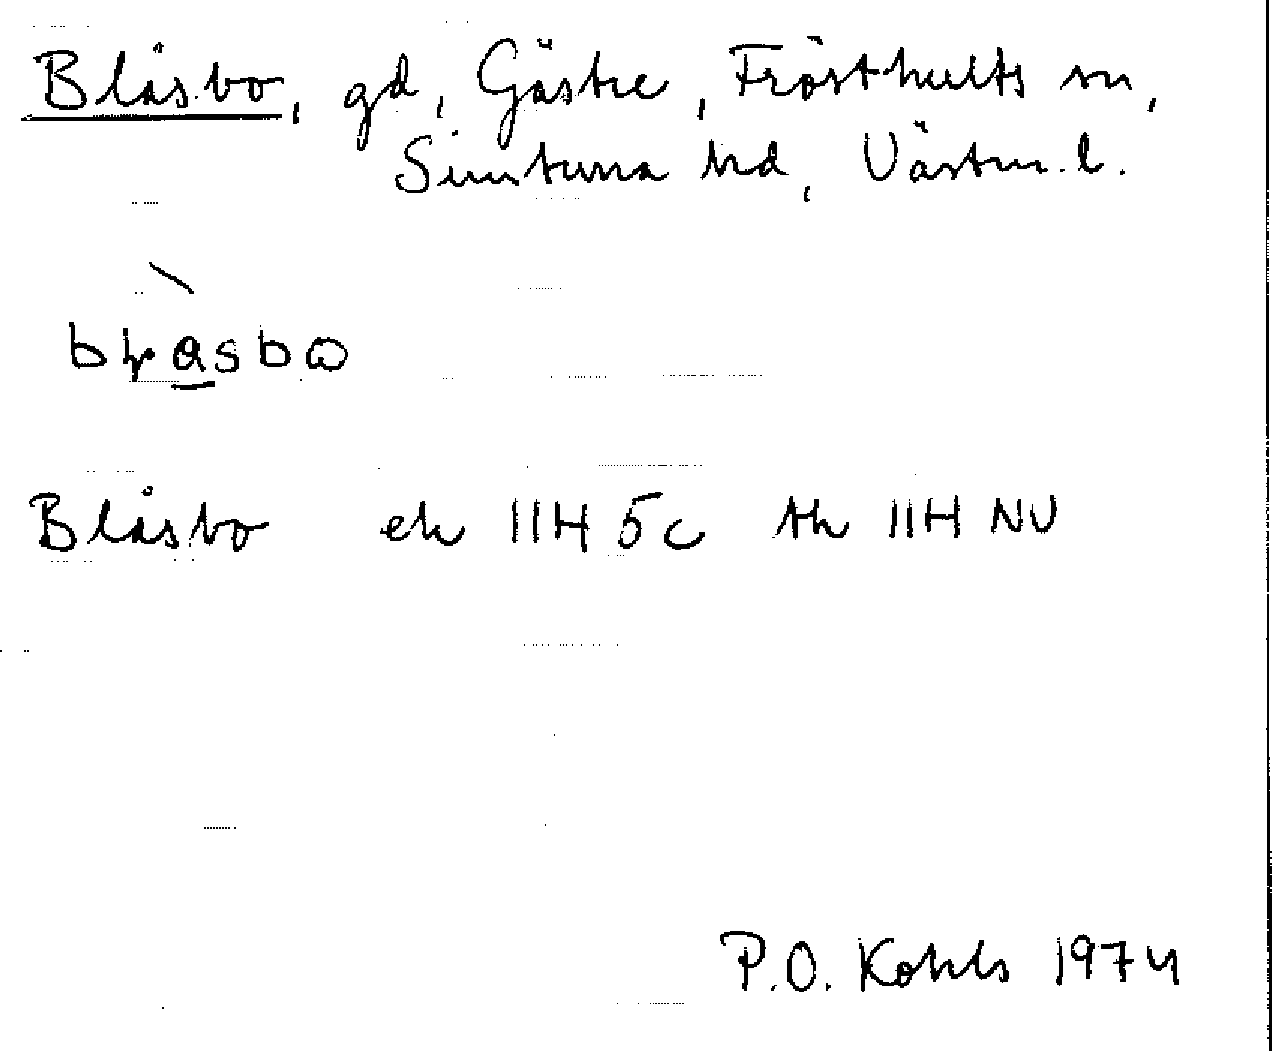 Blåsbo, gd, Gästre, Frösthults sn,
Simtuna hd, Västm. l.
Blåsbo ek 11H 5c tk 11H NV
P.O. Kohls 1974